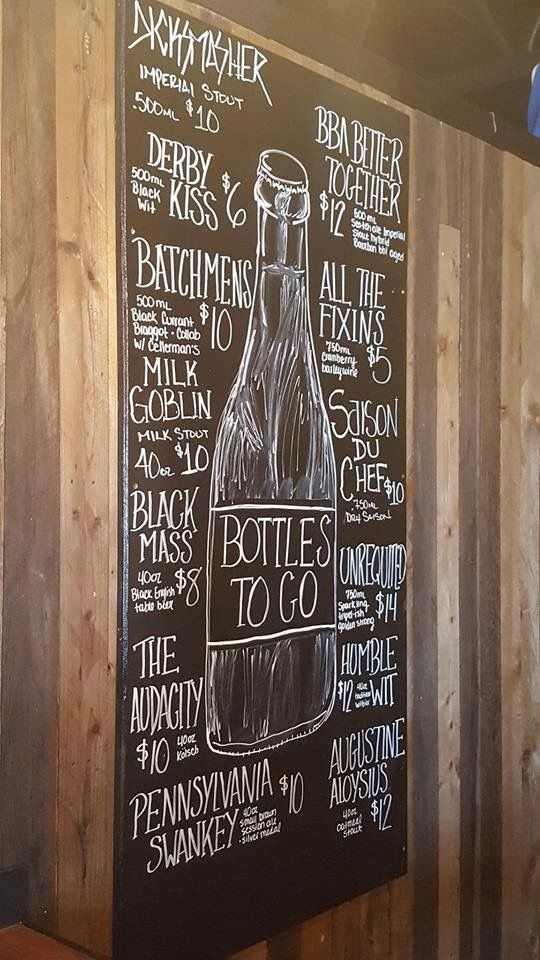 DICKSMASHER
IMPERIAL STOUT
500ML $10
DERBY
KISS $6
500mL
Black
Wit
BATCHMENS
$10
500mL
Black Currant
Braggot - Collab
w/ Cellerman's
MILK
GOBLIN
MILK STOUT
40oz $10
BLACK
MASS
$8
40oz
Black English
table beer
THE
AUDACITY
$10 40oz
Kolsch
PENNSYLVANIA
SWANKEY
$10
40oz
small brown
session ale
silver medal
BOTTLES
TO GO
BBA BETTER
TOGETHER
$12
500 mL
Scotch ale Imperial
Stout hybrid
Bourbon bbl aged
ALL THE
FIXINS
$5
750mL
cranberry
barleywine
SAISON
DU
CHEF $10
750mL
DRY SAISON
UNREQUITED
$14
750mL
Sparkling
tripel-ish
golden strong
HUMBLE
WIT
$12 40oz
AUGUSTINE
ALOYSIUS
$12
40oz
oatmeal
stout